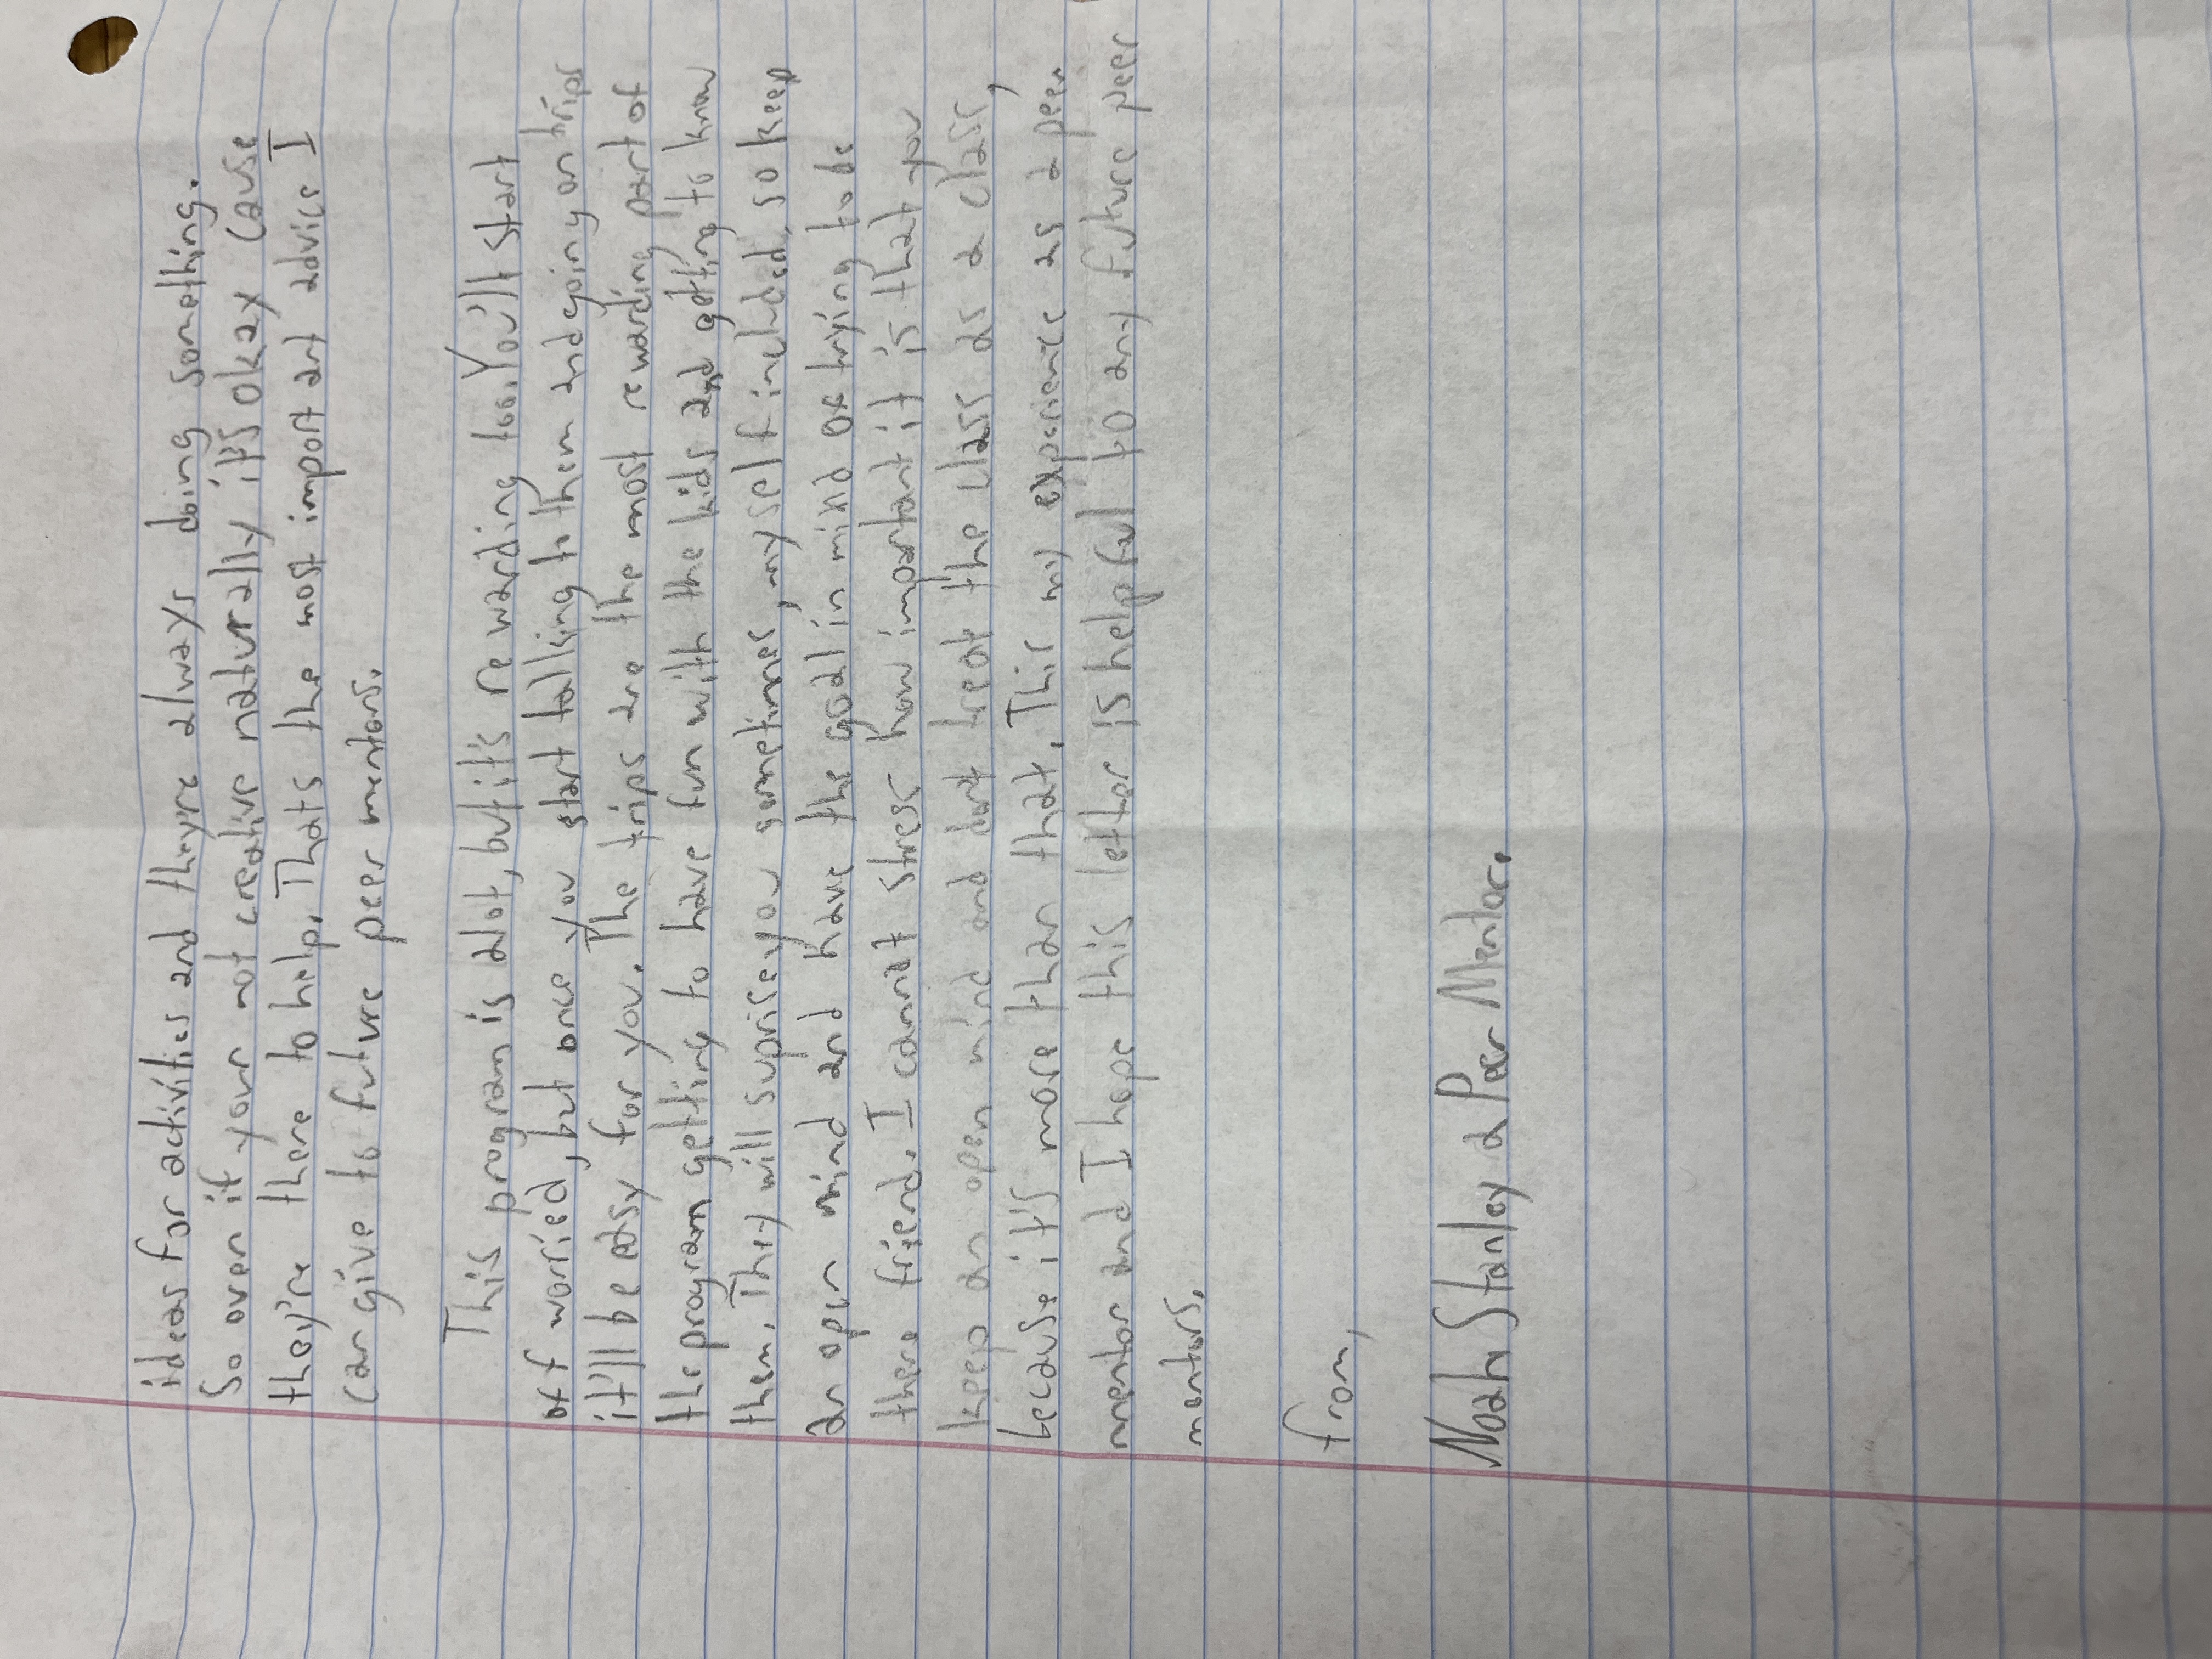 ideas for activities and they're always doing something.
So even if your not creative naturally it's okay cause
they're there to help. Thats the most important advice I
can give to future peer mentors.
This program is alot, but it's rewarding too. You'll start
off worried, but once you start talking to them and going on trips
it'll be easy for you. The trips are the most rewarding part of
the program getting to have fun with the kids and getting to know
them. They will suprise you sometimes, myself included, so keep
an open mind and have the goal in mind of trying to be
there friend. I cannot stress how important it is that you
keep an open mind and dont treat the class as a class,
because it's more than that. This my experience as a peer
mentor and I hope this letter is helpful to any future peer
mentors.
from,
Noah Stanley a Peer Mentor.